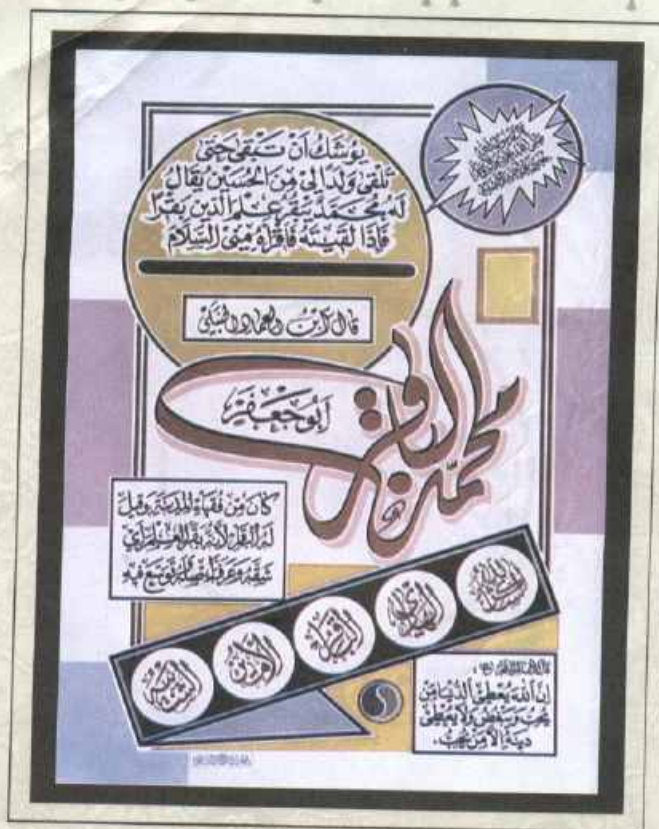 يُوشَكُ أَنْ تَبْقى حَتّى
تَلْقى وَلَداً لِي مِنَ الحُسَيْن يُقالُ
لَهُ مُحَمَّدٌ يَبْقُرُ عِلْمَ الدِّين بَقْراً
فَإذا لَقيتَهُ فَاقْرَأْهُ مِنّي السَّلام
قال ابن العماد الحنبلي
محمد الباقر
أبو جَعْفَر
كانَ مِنْ فُقَهاءِ المَدينَة وَقيلَ
لَهُ الباقِر لأنَّهُ بَقَرَ العِلْمَ أي
شَقَّهُ وَعَرَفَ أَصْلَهُ وَتَوَسَّعَ فيهِ
الهادي
الأمين
إنَّ اللهَ يُعْطي الدُّنيا مَنْ
يُحِبُّ وَيُبْغِضُ وَلا يُعْطي
دينَهُ إلاّ مَنْ يُحِبُّ